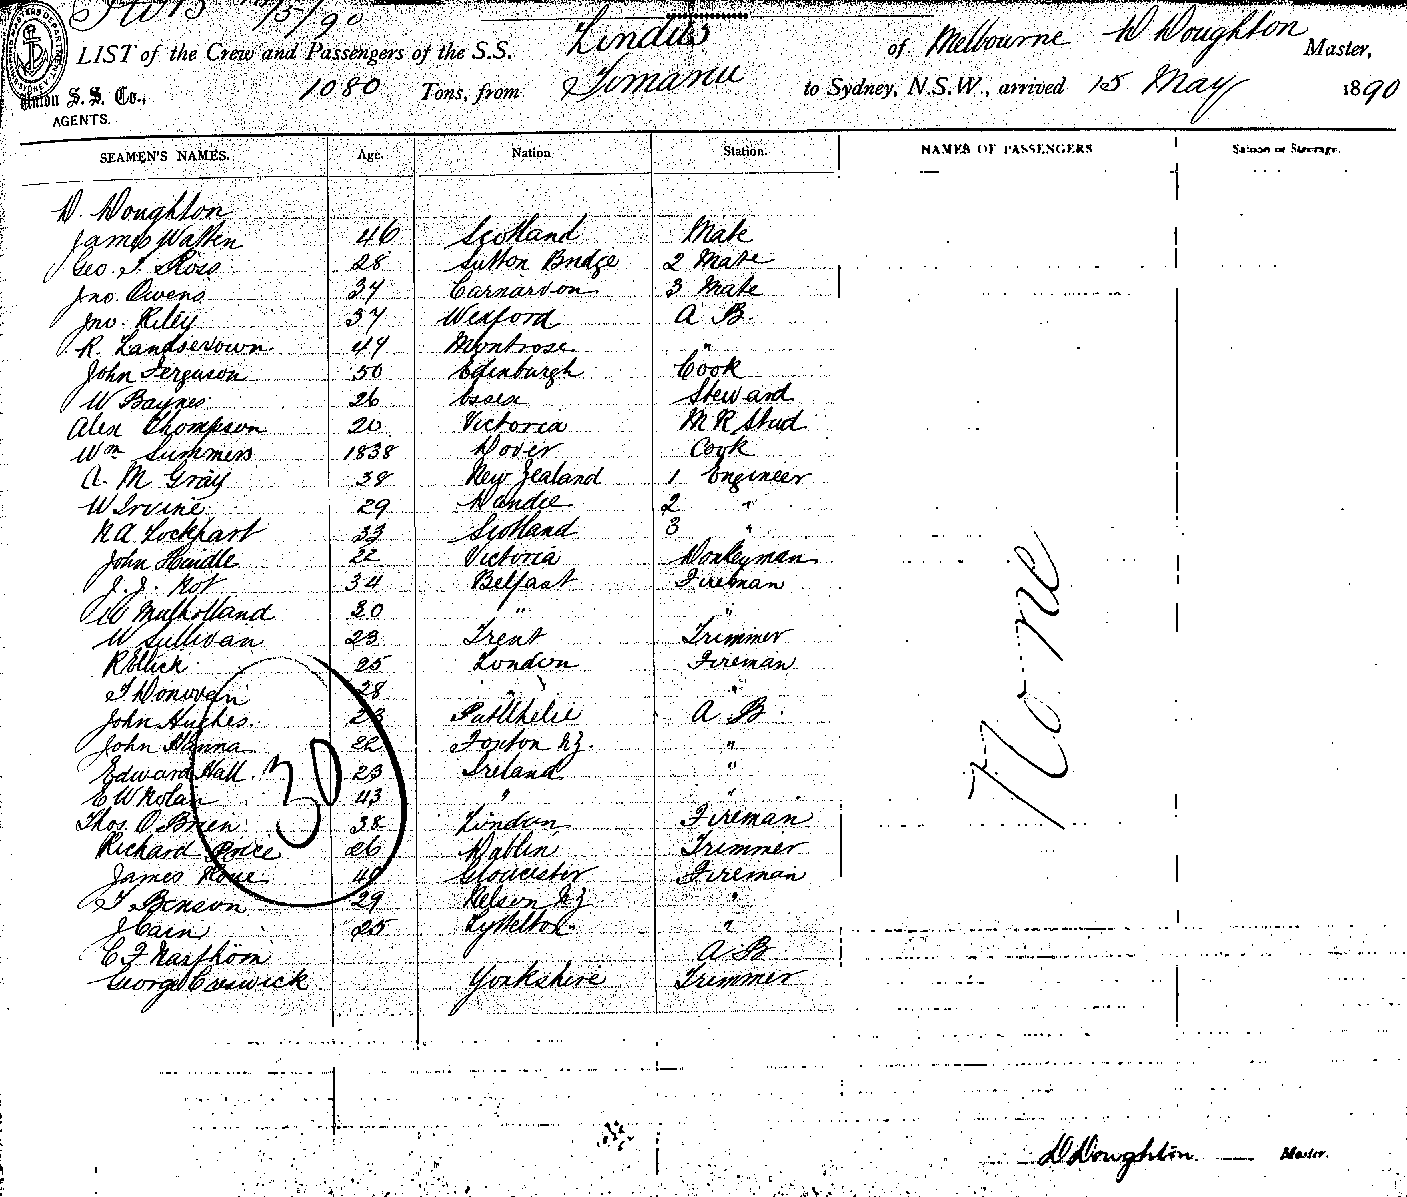 15/5/90
LIST of the Crew and Passengers of the S.S. Lindus of Melbourne D Doughton Master,
Union S. S. Co., 1080 Tons, from Timaru to Sydney, N.S.W., arrived 15 May 1890
AGENTS.
SEAMEN'S NAMES. Age. Nation Station. NAMES OF PASSENGERS Saloon or Steerage.
D. Doughton
James Watten 46 Scotland Mate
Geo. T. Ross 28 Sutton Bridge 2 Mate
Jno. Owens 34 Carnarvon 3 Mate
Jno. Riley 37 Wexford A B.
R. Landserown 49 Montrose "
John Ferguson 50 Edinburgh Cook
W Baynes 26 Essex Steward
Alex Thompson 20 Victoria M R Stud
Wm Summers 1838 Dover Cook
A. M Gray 38 New Zealand 1 Engineer
W Irvine 29 Dundee 2 "
R A Lockhart 33 Scotland 3 "
John Hindle 22 Victoria Donkeyman
J. J. 34 Belfast Fireman
W Mulholland 30 " "
W Sullivan 23 Trent Trimmer
R Ellick 25 London Fireman
T Donovan 28 " "
John Hughes 23 A B
John Hanna 22 Foxton NZ. "
Edward Hall 23 Ireland "
E W Nolan 43 " "
Thos O Brien 38 London Fireman
Richard Price 26 Dublin Trimmer
James Rowe 40 Gloucester Fireman
T Benson 29 Nelson NZ "
J Cain 25 Lyttelton "
C F A B
George Creswick Yorkshire Trimmer
30
None
D Doughton Master.